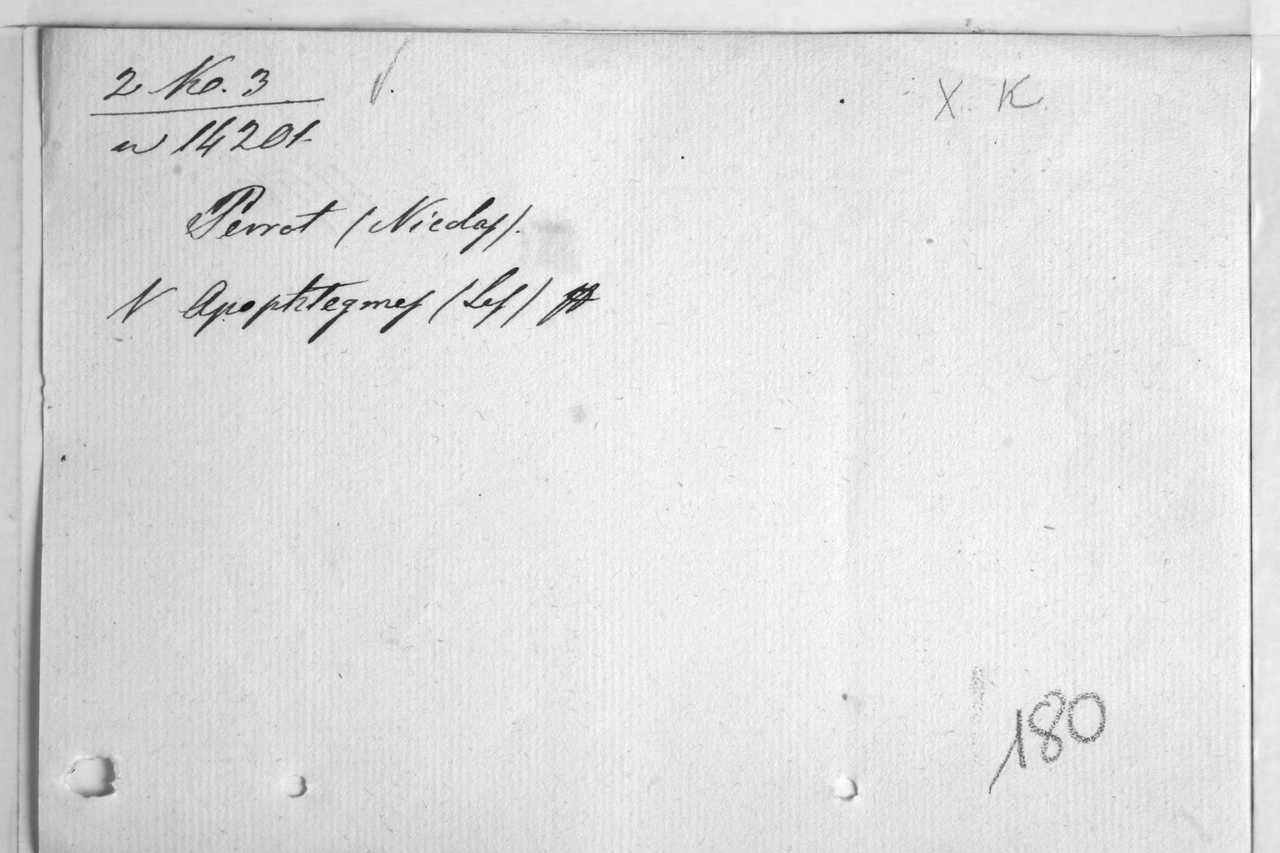 2 No. 3
X. K.
w 14201
Perrot (Nicolas).
N Apophtegmes (Les)
180